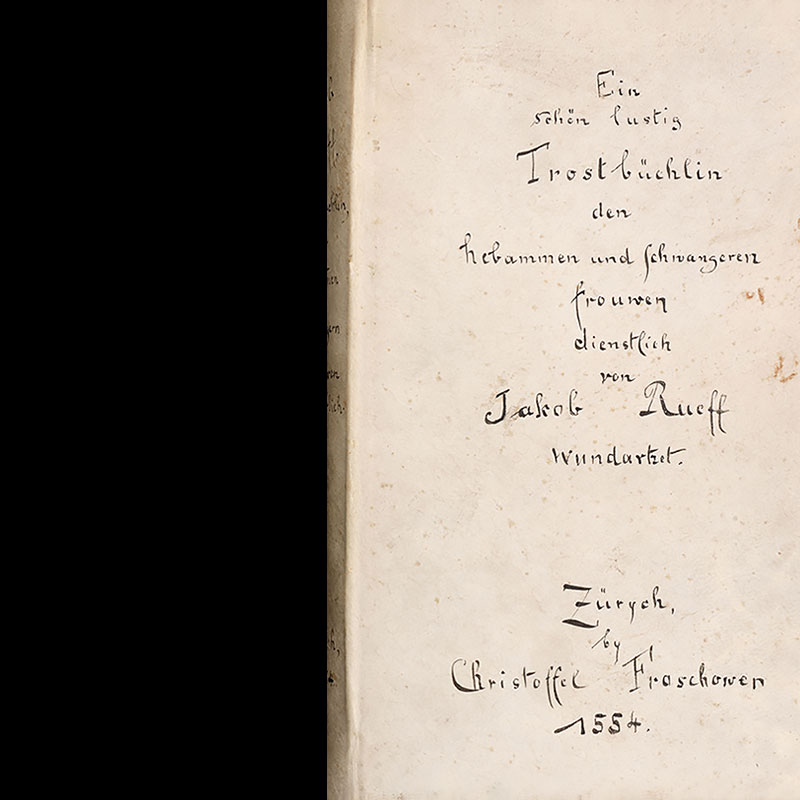 Ein
schön lustig
Trostbüchlin
den
hebammen und schwangeren
frouwen
dienstlich
von
Jakob Rueff
Wundartzet.
Zürych,
by
Christoffel Froschower
1554.